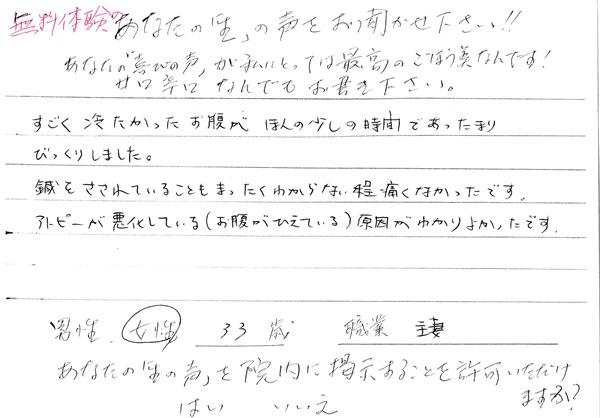 無料体験のあなたの「生」の声をお聞かせ下さい!!
あなたの「喜びの声」が私にとっては最高のごほう美なんです!
甘口辛口 なんでもお書き下さい。
すごく 冷たかった お腹が ほんの少しの時間であったまり
びっくりしました。
鍼をさされていることもまったくわからない程痛くなかったです.
アトピーが悪化している(お腹がひえている)原因がわかりよかったです.
男性. 女性 33 歳 職業 主妻
あなたの「生の声」を院内に掲示することを許可いただけ
ますか?
はい いいえ